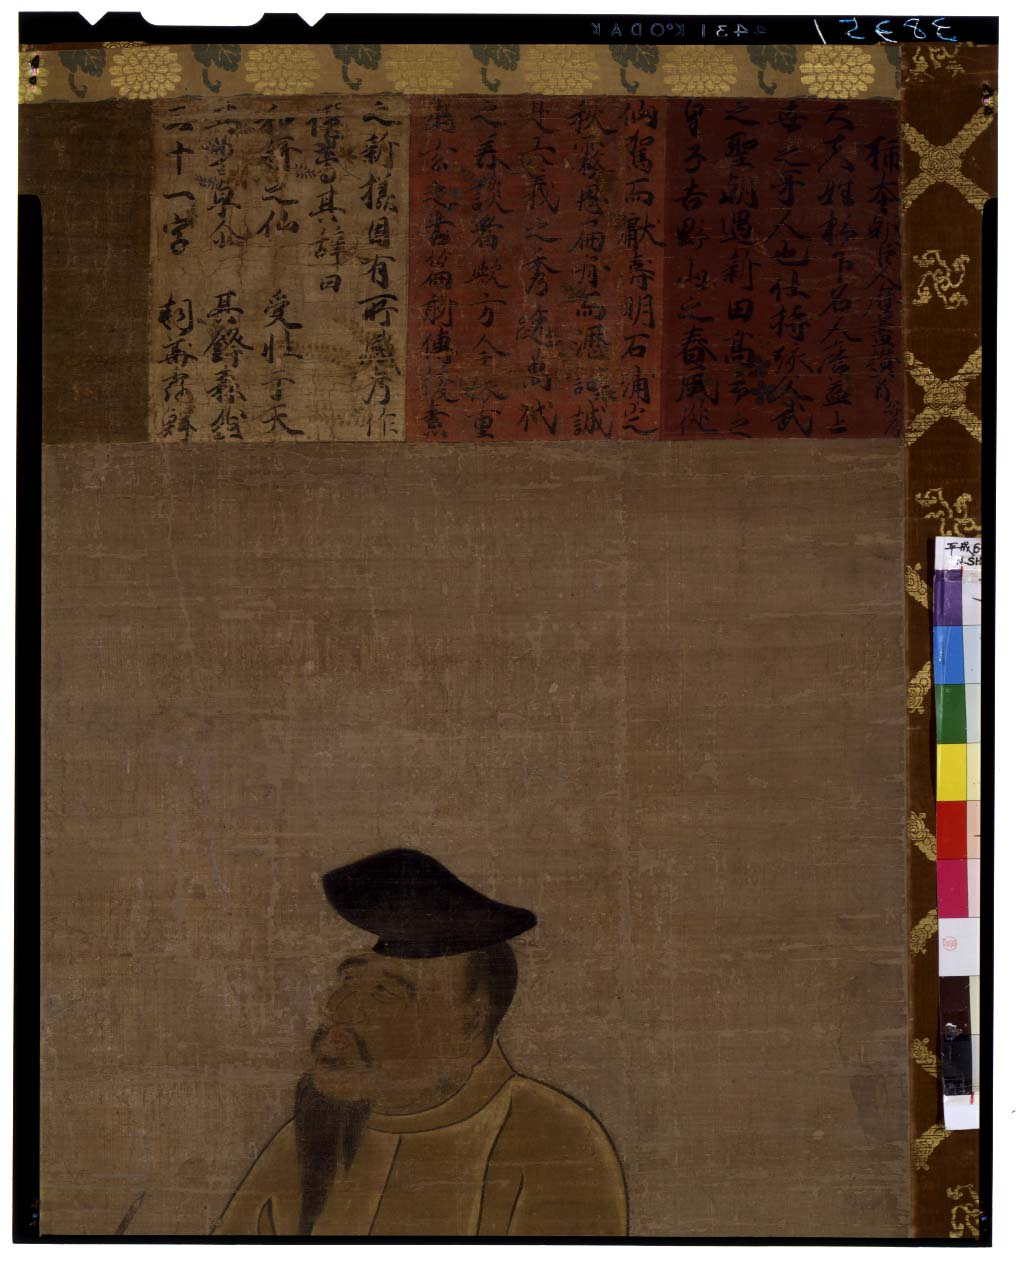 柿本朝臣人麿畫讃一首
大夫姓柿下名人麿蓋上
世之哥人也仕持統文武
之聖朝遇新田高市之
皇子吉野山之春風従
仙駕而獻壽明石浦之
秋霧思扁舟而瀝詞誠
是六義之秀逸萬代
之美談者歟方今依重
幽玄之古篇聊傳後素
之新様因有所感乃作
讃焉其辞曰
和歌之仙 受性于天
其才卓尒 其鋒森然
三十一字 詞華露鮮
38351
4431 KODAK
平成6
N.SH